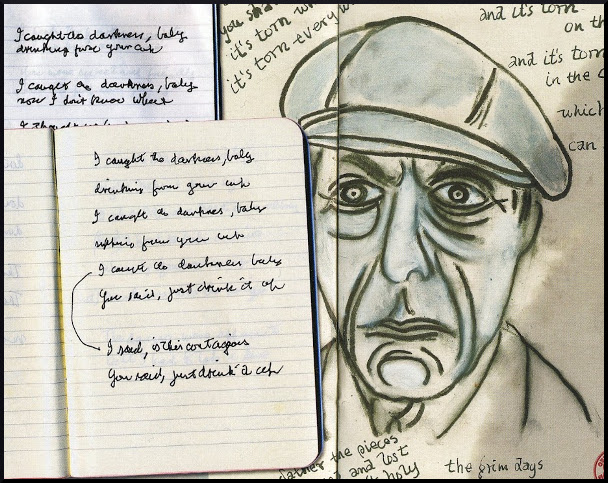 I caught the darkness, baby
drinking from your cup
I caught the darkness, baby
now I don't know what
I caught the darkness, baby
drinking from your cup
I caught the darkness, baby
sipping from your cup
I caught the darkness baby
You said, just drink it up
I said, is this contagious
You said, just drink it up
you sha
it's torn wh
it's torn everyw
and it's torn
on th
and it's torn
in the
which
can
gather the pieces
and lost
holy
the grim days